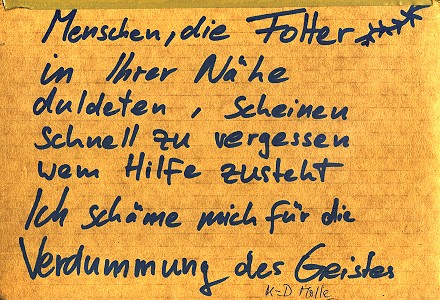 Menschen, die Folter ****
in Ihrer Nähe
duldeten, scheinen
schnell zu vergessen
wem Hilfe zusteht
Ich schäme mich für die
Verdummung des Geistes
K-D Molle